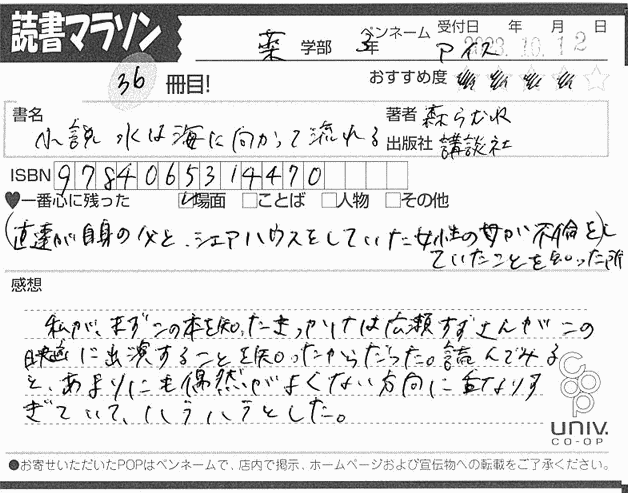 読書マラソン
薬 学部 3年 ペンネーム アイス 受付日 年 月 日
2023.10.12
36 冊目!
おすすめ度 ★★★★☆
書名
小説 水は海に向かって流れる
著者 森らむね
出版社 講談社
ISBN 9784065314470
♥一番心に残った ☑場面 □ことば □人物 □その他
(直達が自身の父と、シェアハウスをしていた女性の母が不倫をし
ていたことを知った所
感想
私が、まずこの本を知ったきっかけは広瀬すずさんがこの
映画に出演することを知ったからだった。読んでみる
と、あまりにも偶然がよくない方向に重なりす
ぎていて、ハラハラとした。
coop
UNIV.
CO-OP
●お寄せいただいたPOPはペンネームで、店内で掲示、ホームページおよび宣伝物への転載をご了承ください。